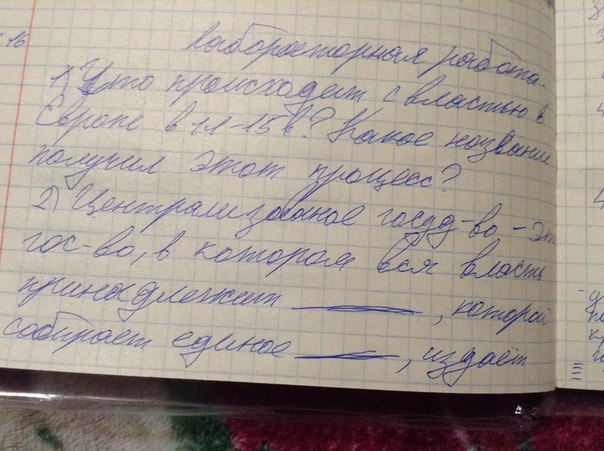 Лабораторная работа.
1) Что происходит с властью в
Европе в 11-15 в? Какое название
получил этот процесс?
2) Централизованое госуд-во - это
гос-во, в котором вся власть
принадлежит ______, который
собирает единое ______, издаёт